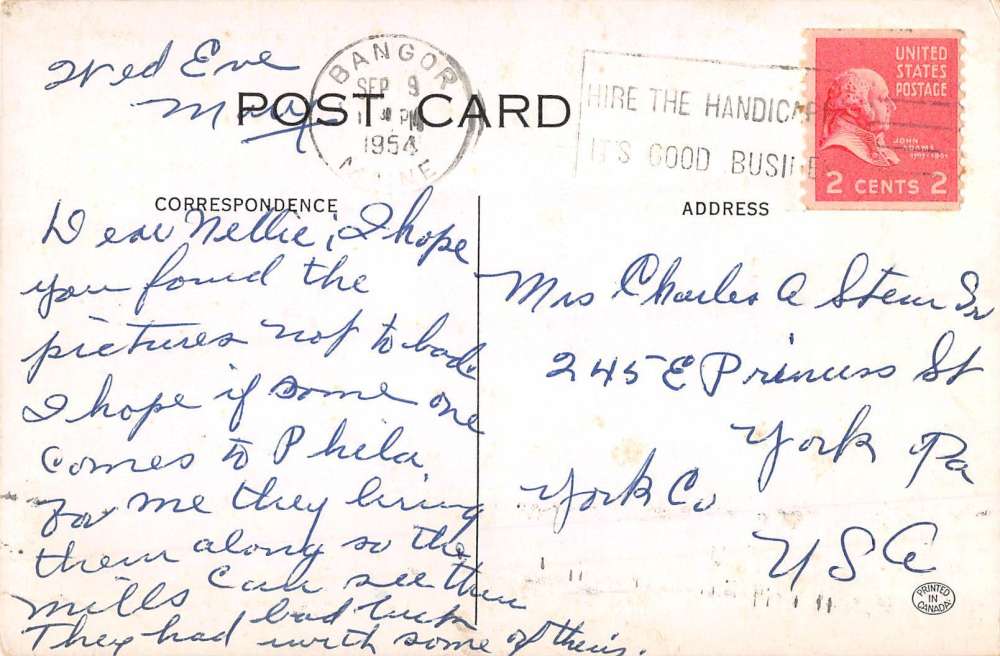 Wed Eve
May
POST CARD
BANGOR
SEP 9
PM
1954
MAINE
HIRE THE HANDICAPP
IT'S GOOD BUSINE
UNITED
STATES
POSTAGE
JOHN
ADAMS
2 CENTS 2
CORRESPONDENCE
Dear Nellie, I hope
you found the
pictures not to bad.
I hope if some one
comes to Phila.
For me they bring
them along so the
Mills can see them
They had bad luck
with some of theirs.
ADDRESS
Mrs Charles A Stem Sr
245 E Princess St
York Pa
York Co
USA
PRINTED
IN
CANADA